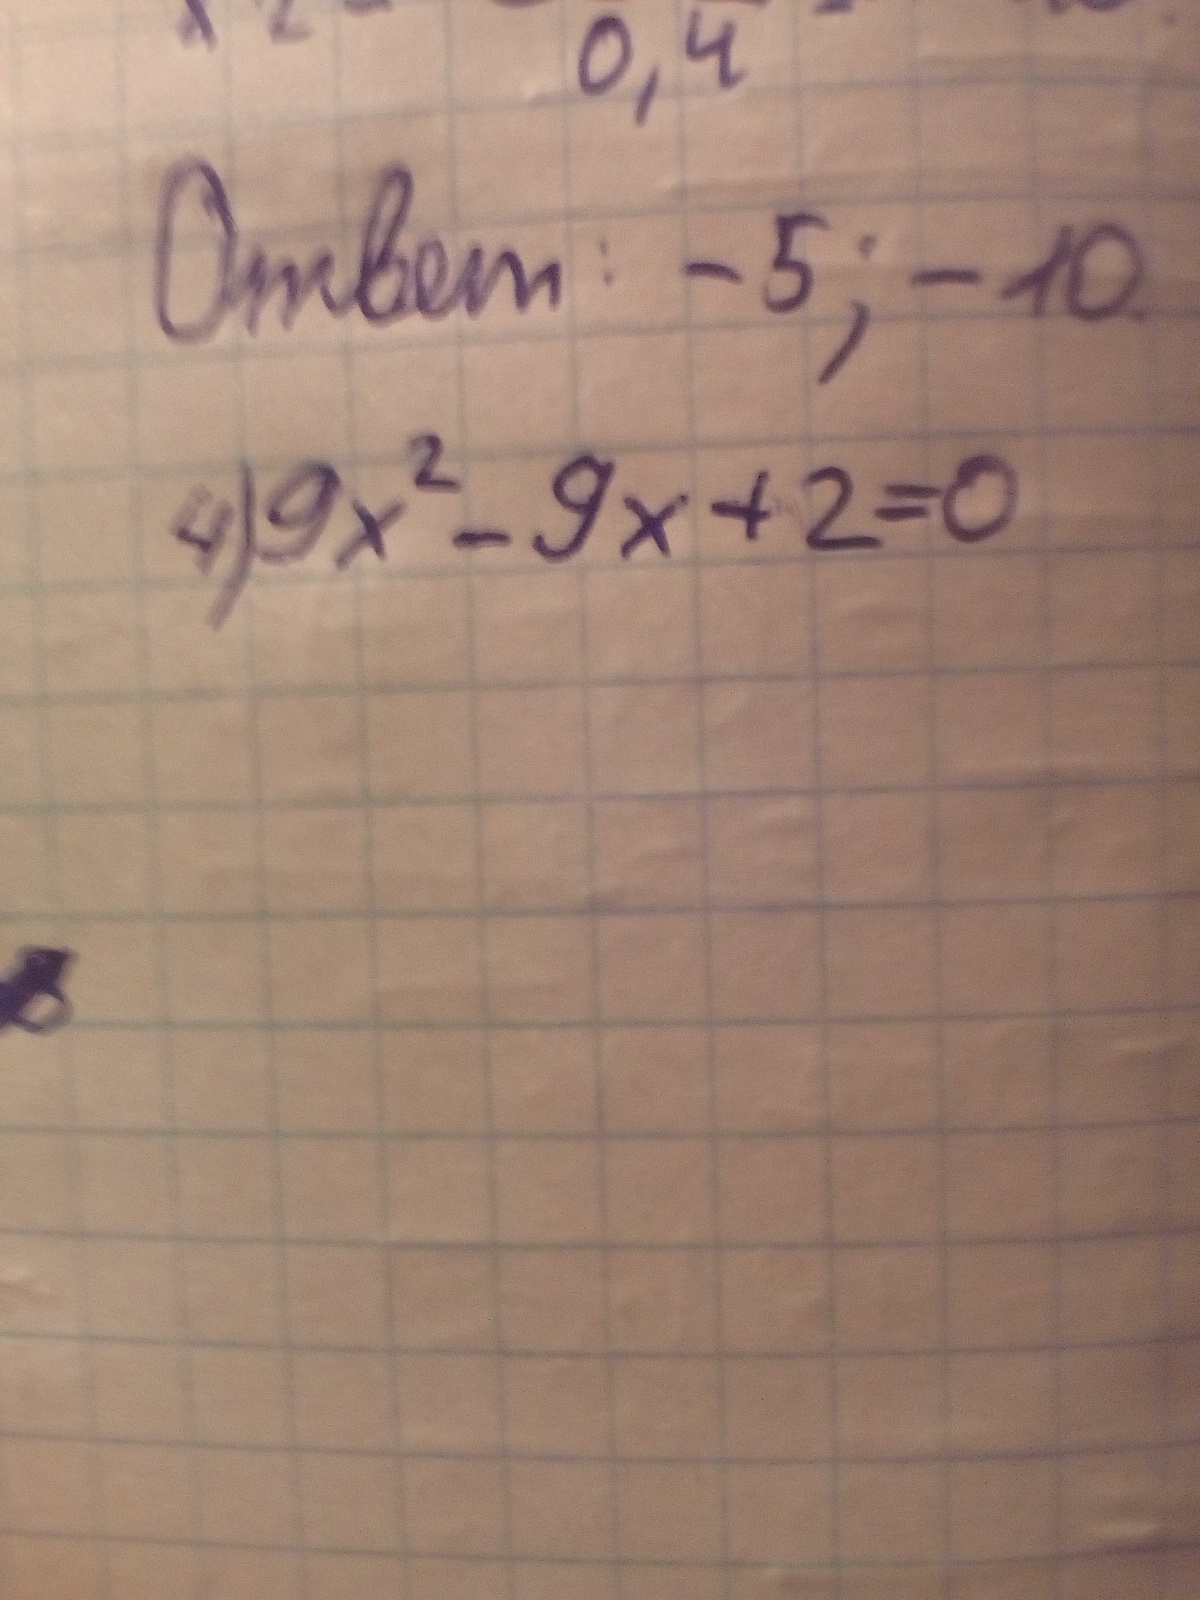 0,4
Ответ: -5; -10.
4) 9x² - 9x + 2 = 0